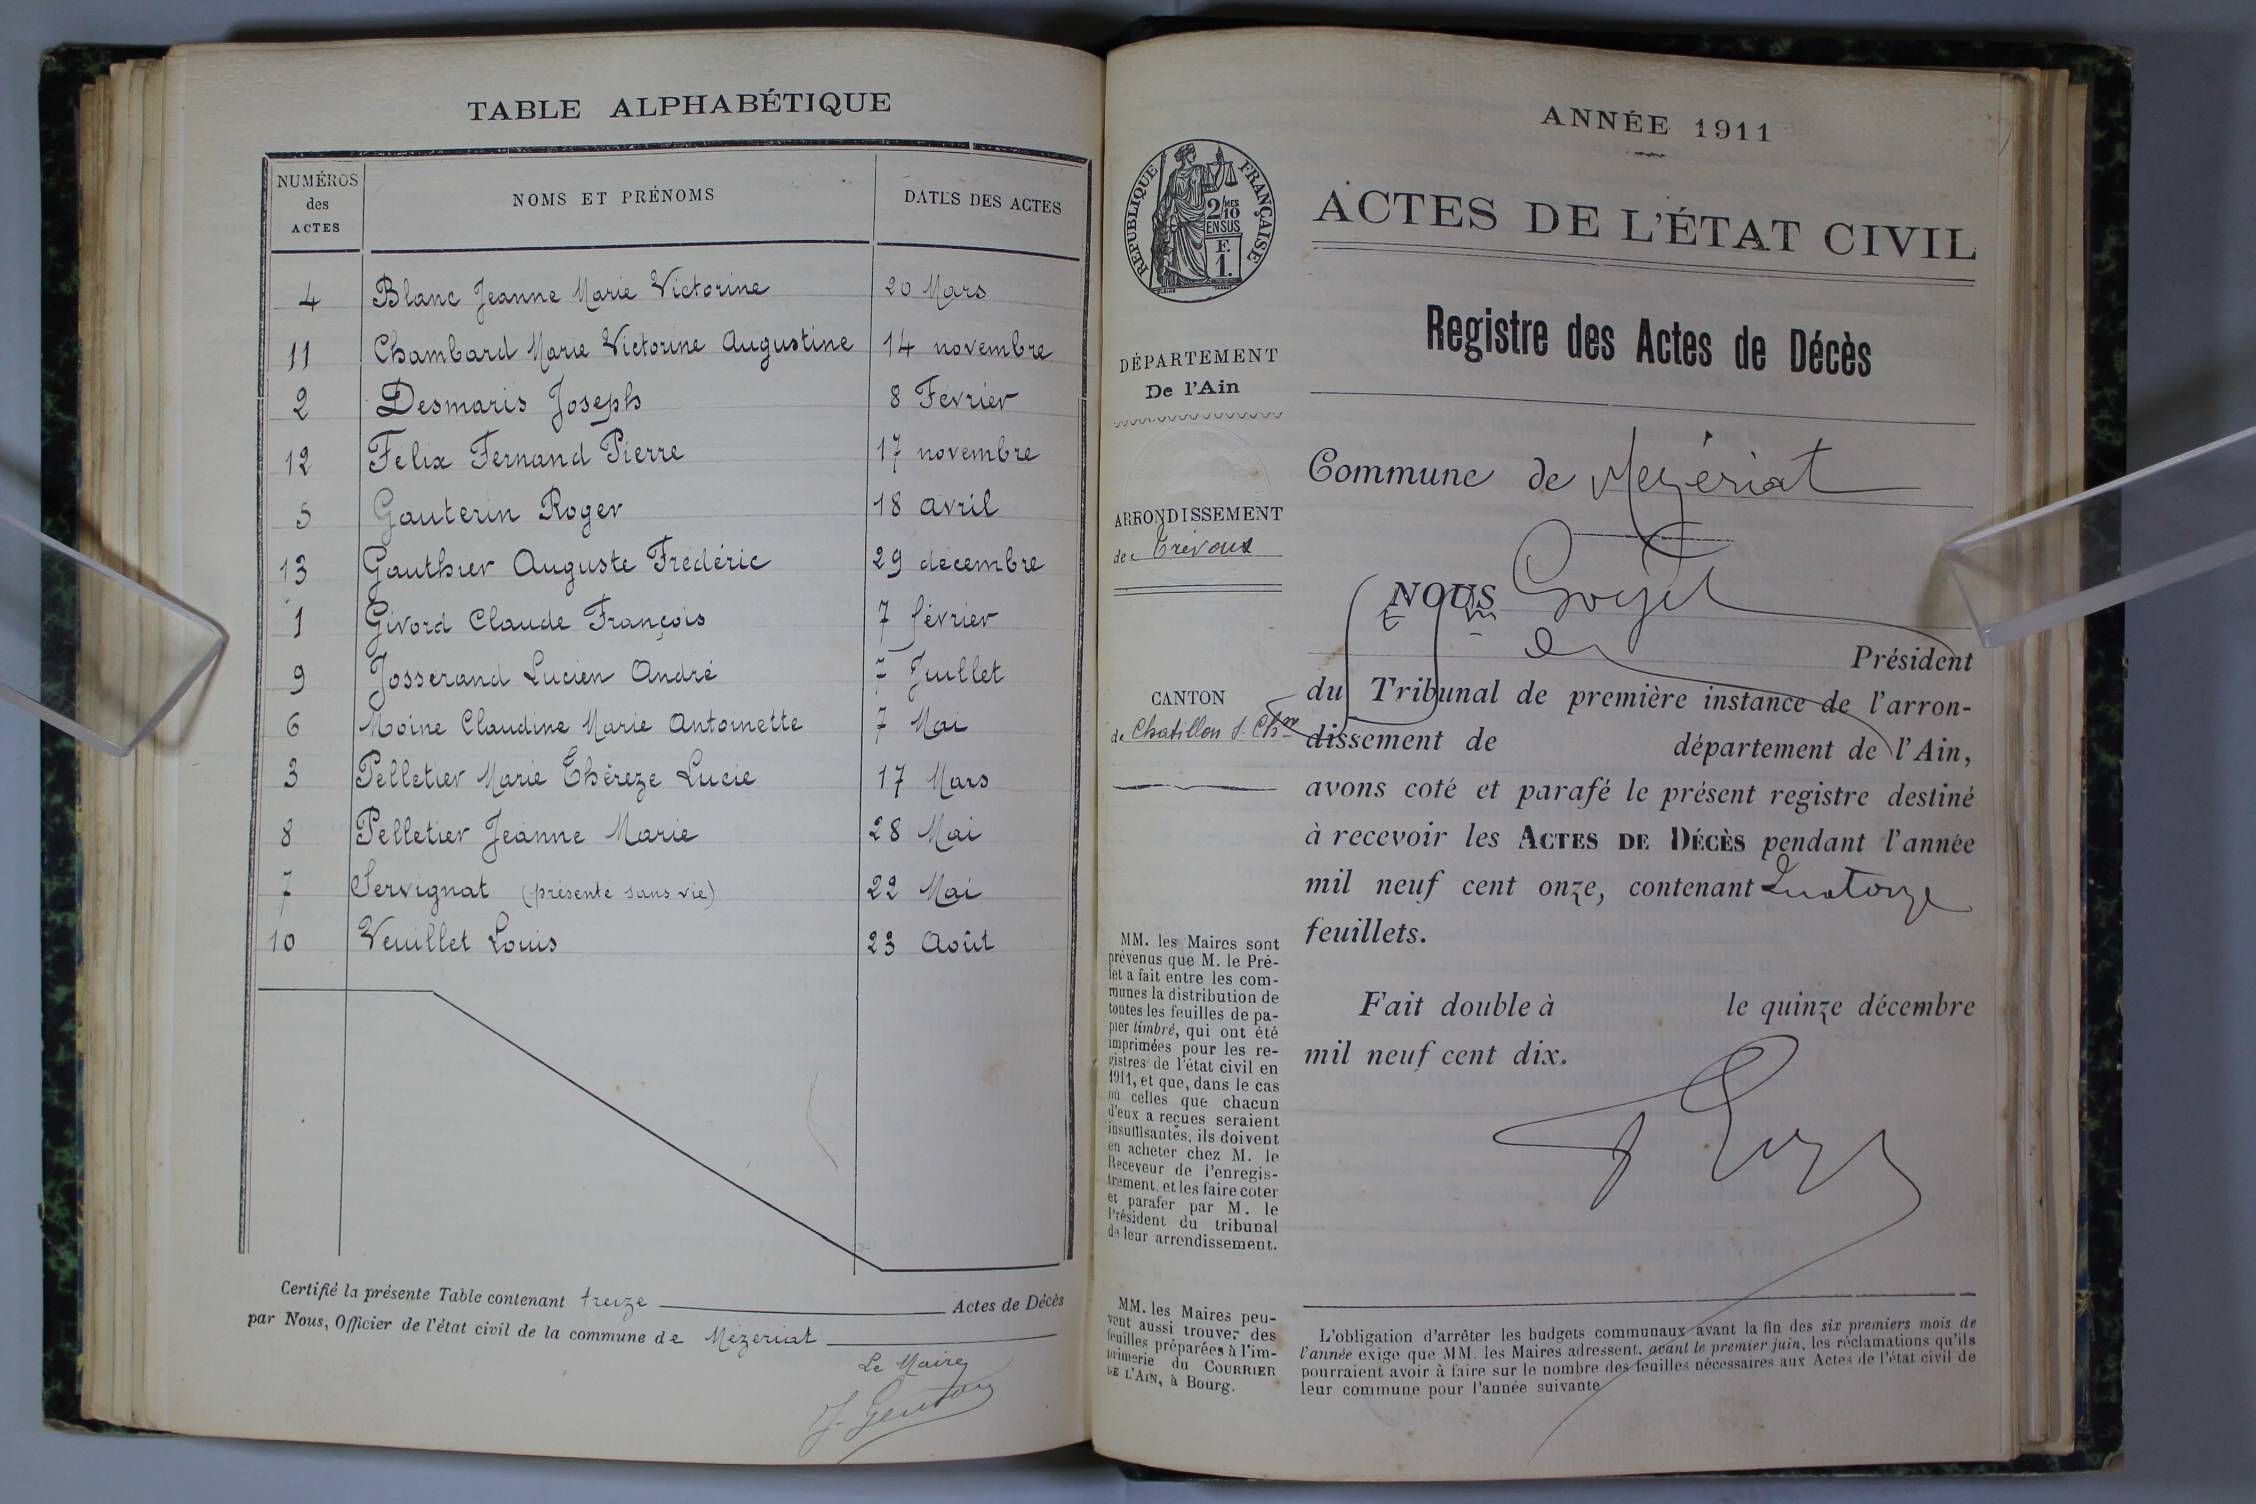 TABLE ALPHABÉTIQUE
NUMÉROS des ACTES
NOMS ET PRÉNOMS
DATES DES ACTES
4 Blanc Jeanne Marie Victorine 20 Mars
11 Chambard Marie Victorine Augustine 14 novembre
2 Desmaris Joseph 8 Février
12 Félix Fernand Pierre 17 novembre
5 Gauterin Roger 18 avril
13 Gauthier Auguste Frédéric 29 décembre
1 Givord Claude François 7 février
9 Josserand Lucien André 7 Juillet
6 Moine Claudine Marie Antoinette 7 Mai
3 Pelletier Marie Thérèze Lucie 17 Mars
8 Pelletier Jeanne Marie 28 Mai
7 Servignat (présenté sans vie) 22 Mai
10 Veuillet Louis 23 Août
Certifié la présente Table contenant treize Actes de Décès
par Nous, Officier de l'état civil de la commune de Mézériat
Le Maire
ANNÉE 1911
RÉPUBLIQUE FRANÇAISE
2/10 MES
EN SUS
F.
1.
ACTES DE L'ÉTAT CIVIL
Registre des Actes de Décès
DÉPARTEMENT
De l'Ain
ARRONDISSEMENT
de Trévoux
CANTON
de Chatillon s. Chne
Commune de Mézériat
NOUS
Président
du Tribunal de première instance de l'arron-
dissement de département de l'Ain,
avons coté et parafé le présent registre destiné
à recevoir les ACTES DE DÉCÈS pendant l'année
mil neuf cent onze, contenant Quatorze
feuillets.
Fait double à le quinze décembre
mil neuf cent dix.
MM. les Maires sont
prévenus que M. le Pré-
fet a fait entre les com-
munes la distribution de
toutes les feuilles de pa-
pier timbré, qui ont été
imprimées pour les re-
gistres de l'état civil en
1911, et que, dans le cas
où celles que chacun
d'eux a reçues seraient
insuffisantes, ils doivent
en acheter chez M. le
Receveur de l'enregis-
trement, et les faire coter
et parafer par M. le
Président du tribunal
de leur arrondissement.
MM. les Maires peu-
vent aussi trouver des
feuilles préparées à l'im-
primerie du COURRIER
DE L'AIN, à Bourg.
L'obligation d'arrêter les budgets communaux avant la fin des six premiers mois de
l'année exige que MM. les Maires adressent, avant le premier juin, les réclamations qu'ils
pourraient avoir à faire sur le nombre des feuilles nécessaires aux Actes de l'état civil de
leur commune pour l'année suivante